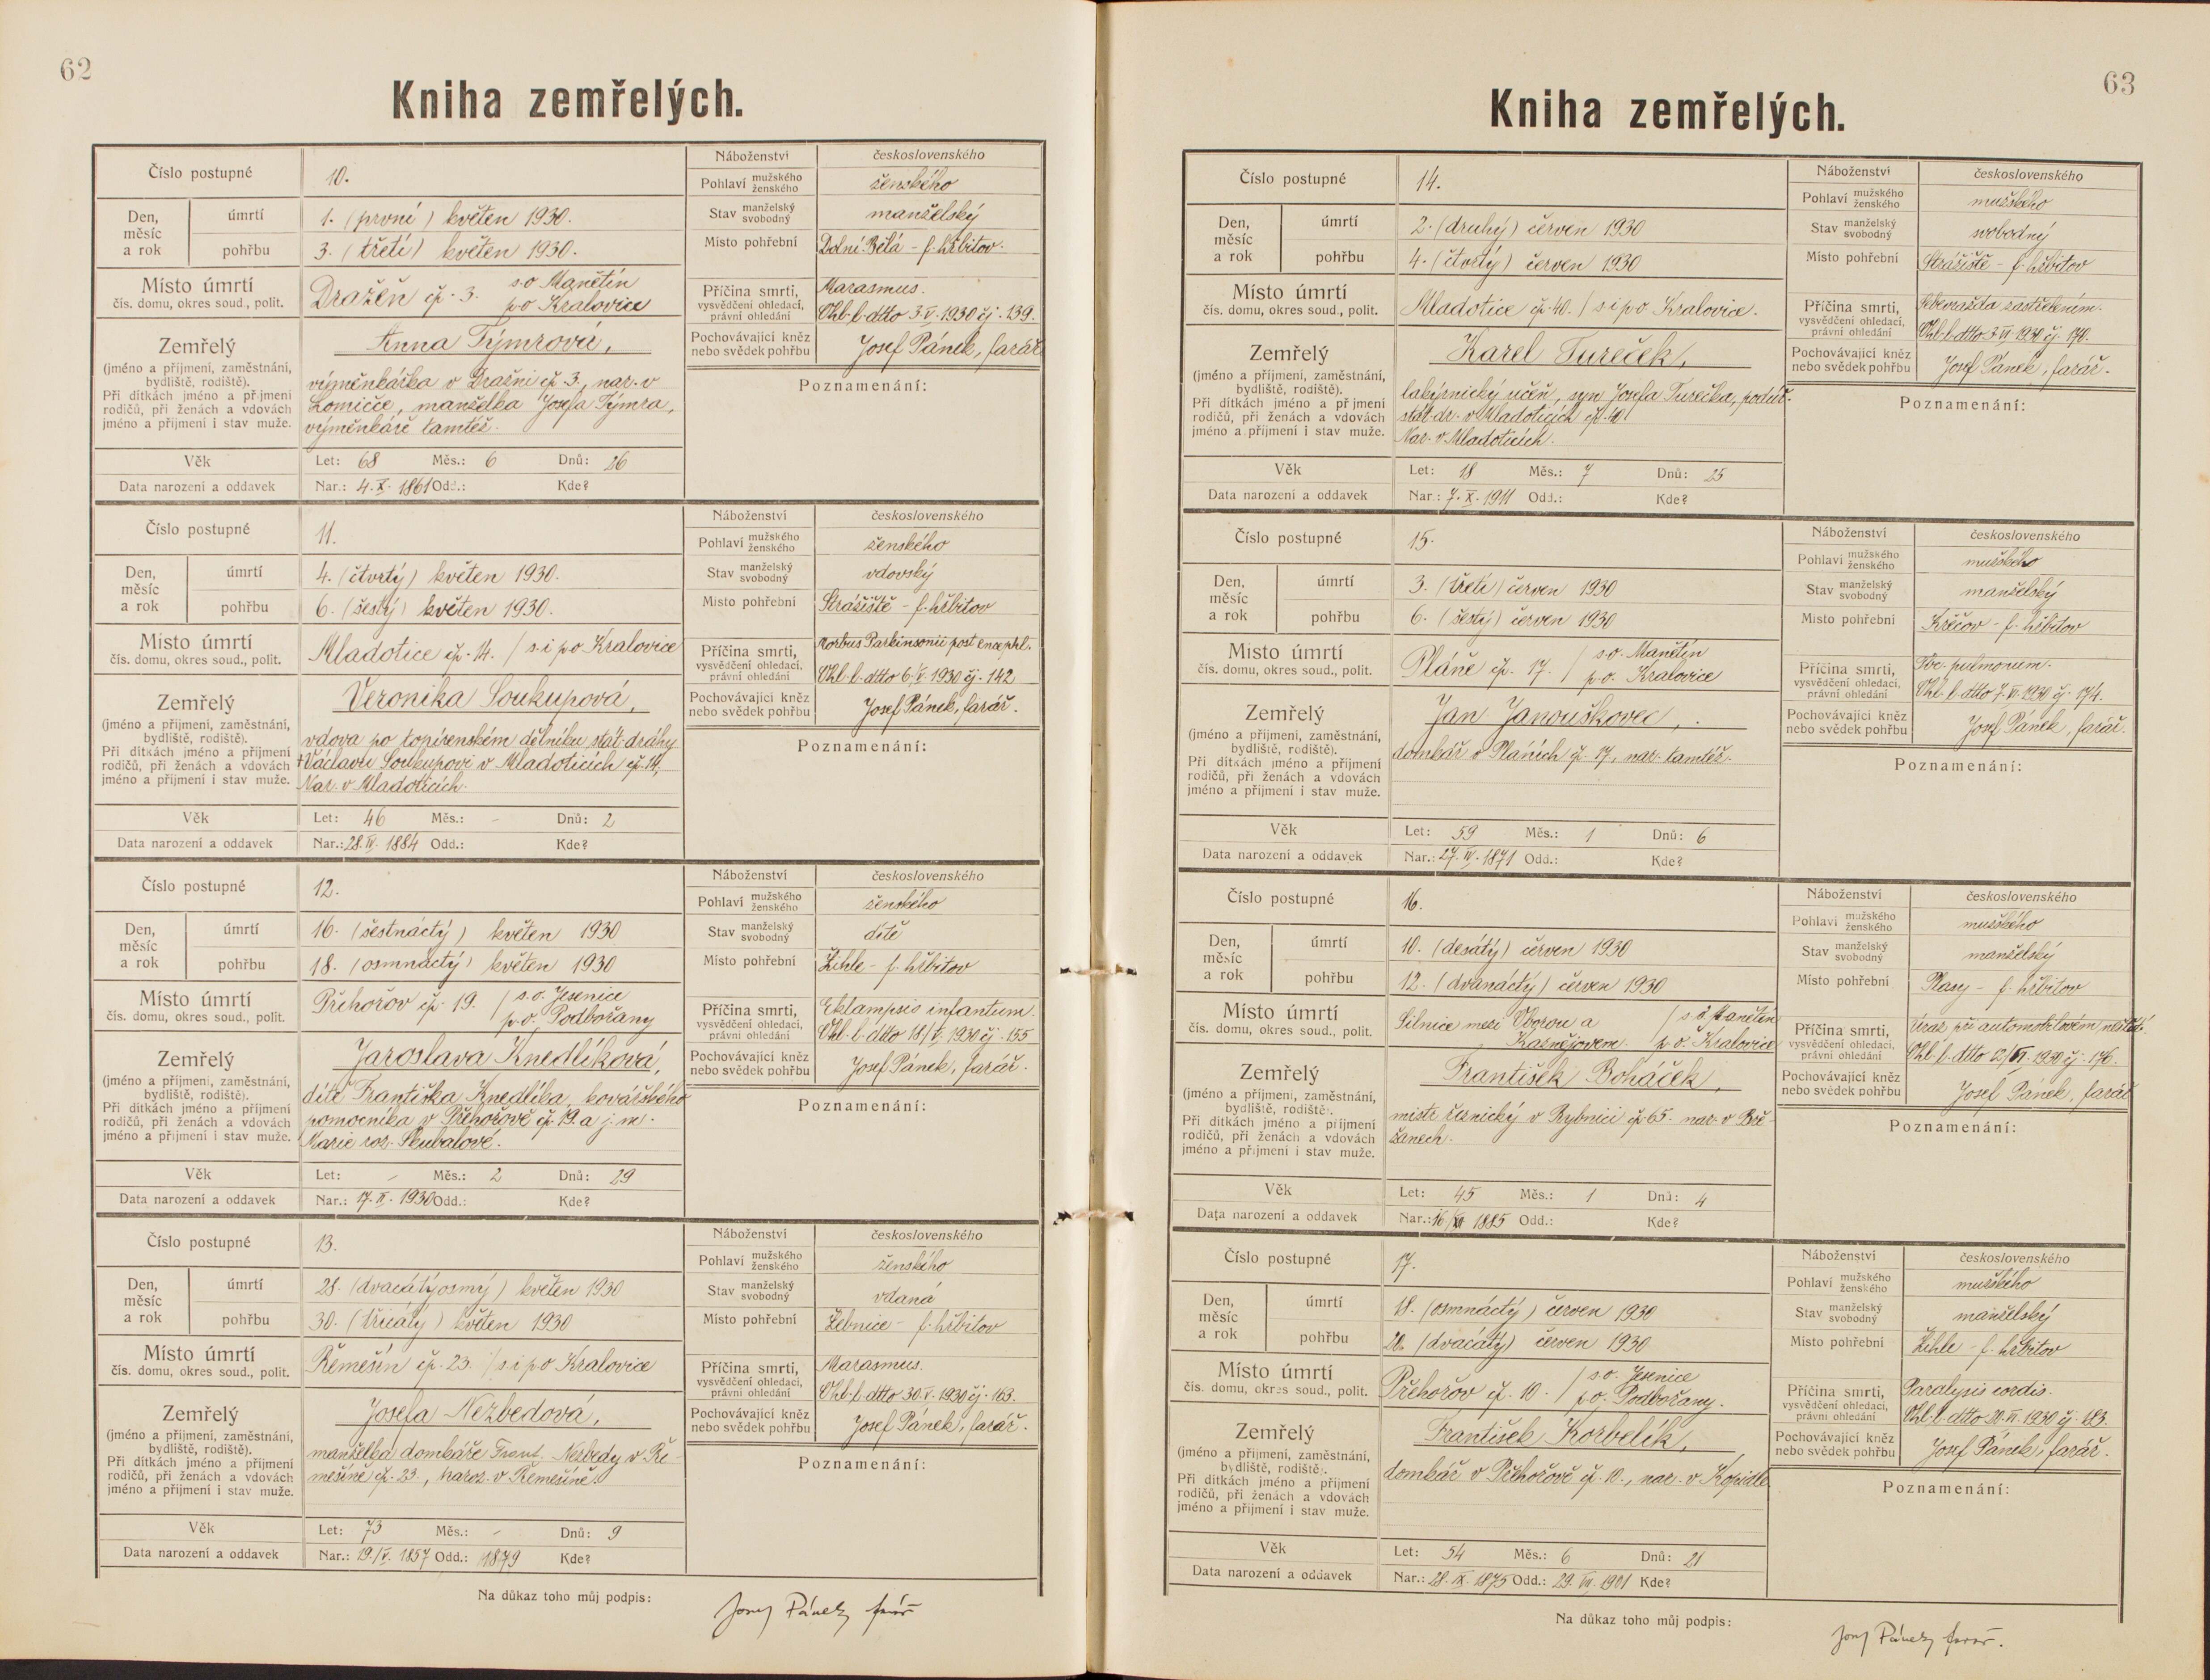 62
Kniha zemřelých.
Číslo postupné 10.
Náboženství československého
Pohlaví mužského ženského ženského
Den, měsíc a rok úmrtí 1. (první) květen 1930.
Stav manželský svobodný manželský
pohřbu 3. (třetí) květen 1930.
Místo pohřební Dolní Bělá - f. hřbitov.
Místo úmrtí čís. domu, okres soud., polit. Dražeň čp. 3. s.o Manětín
p.o Kralovice
Příčina smrti, vysvědčení ohledací, právní ohledání Marasmus.
Ohl. l. dtto 3.V.1930 čj. 139.
Pochovávající kněz nebo svědek pohřbu Josef Pánek, farář
Zemřelý (jméno a příjmení, zaměstnání, bydliště, rodiště). Při dítkách jméno a příjmení rodičů, při ženách a vdovách jméno a příjmení i stav muže.
Anna Týmrová,
výměnkářka v Dražni čp. 3., nar. v
Lomičce, manželka Josefa Týmra,
výměnkáře tamtéž.
Poznamenání:
Věk Let: 68 Měs.: 6 Dnů: 26
Data narození a oddavek Nar.: 4.X. 1861 Odd.: Kde?
Číslo postupné 11.
Náboženství československého
Pohlaví mužského ženského ženského
Den, měsíc a rok úmrtí 4. (čtvrtý) květen 1930.
Stav manželský svobodný vdovský
pohřbu 6. (šestý) květen 1930.
Místo pohřební Strážiště - f. hřbitov
Místo úmrtí čís. domu, okres soud., polit. Mladotice čp. 14. / s. i p o Kralovice
Příčina smrti, vysvědčení ohledací, právní ohledání Morbus Parkinsonii post encephl.
Ohl. l. dtto 6.V.1930 čj. 142
Pochovávající kněz nebo svědek pohřbu Josef Pánek, farář.
Zemřelý (jméno a příjmení, zaměstnání, bydliště, rodiště). Při dítkách jméno a příjmení rodičů, při ženách a vdovách jméno a příjmení i stav muže.
Veronika Soukupová,
vdova po topírenském dělníku stát. dráhy
+ Václavu Soukupovi v Mladoticích čp. 14,
Nar. v Mladoticích.
Poznamenání:
Věk Let: 46 Měs.: - Dnů: 2
Data narození a oddavek Nar.: 28.IV. 1884 Odd.: Kde?
Číslo postupné 12.
Náboženství československého
Pohlaví mužského ženského ženského
Den, měsíc a rok úmrtí 16. (šestnáctý) květen 1930
Stav manželský svobodný dítě
pohřbu 18. (osmnáctý) květen 1930
Místo pohřební Žihle - f. hřbitov
Místo úmrtí čís. domu, okres soud., polit. Přehořov čp. 19. / s.o. Jesenice
p.o. Podbořany
Příčina smrti, vysvědčení ohledací, právní ohledání Eklampsis infantum.
Ohl. l. dtto 18/V. 1930 čj. 155
Pochovávající kněz nebo svědek pohřbu Josef Pánek, farář.
Zemřelý (jméno a příjmení, zaměstnání, bydliště, rodiště). Při dítkách jméno a příjmení rodičů, při ženách a vdovách jméno a příjmení i stav muže.
Jaroslava Knedlíková,
dítě Františka Knedlíka, kovářského
pomocníka v Přehořově čp. 19. a j. m.
Marie roz. Skubalové.
Poznamenání:
Věk Let: - Měs.: 2 Dnů: 29
Data narození a oddavek Nar.: 17.II. 1930 Odd.: Kde?
Číslo postupné 13.
Náboženství československého
Pohlaví mužského ženského ženského
Den, měsíc a rok úmrtí 28. (dvacátýosmý) květen 1930
Stav manželský svobodný vdaná
pohřbu 30. (třicátý) květen 1930
Místo pohřební Žebnice - f. hřbitov
Místo úmrtí čís. domu, okres soud., polit. Řemešín čp. 23. / s. i p.o Kralovice
Příčina smrti, vysvědčení ohledací, právní ohledání Marasmus.
Ohl. l. dtto 30.V.1930 čj. 163.
Pochovávající kněz nebo svědek pohřbu Josef Pánek, farář.
Zemřelý (jméno a příjmení, zaměstnání, bydliště, rodiště). Při dítkách jméno a příjmení rodičů, při ženách a vdovách jméno a příjmení i stav muže.
Josefa Nezbedová,
manželka domkáře Frant. Nezbedy v Ře-
mešíně čp. 23., naroz. v Řemešíně.
Poznamenání:
Věk Let: 73 Měs.: - Dnů: 9
Data narození a oddavek Nar.: 19/V. 1857 Odd.: 1879 Kde?
Na důkaz toho můj podpis: Josef Pánek farář
63
Kniha zemřelých.
Číslo postupné 14.
Náboženství československého
Pohlaví mužského ženského mužského
Den, měsíc a rok úmrtí 2. (druhý) červen 1930
Stav manželský svobodný svobodný
pohřbu 4. (čtvrtý) červen 1930
Místo pohřební Strážiště - f. hřbitov
Místo úmrtí čís. domu, okres soud., polit. Mladotice čp. 40. / s i p o Kralovice.
Příčina smrti, vysvědčení ohledací, právní ohledání Sebevražda zastřelením.
Ohl. l. dtto 3.VI.1930 čj. 170.
Pochovávající kněz nebo svědek pohřbu Josef Pánek, farář.
Zemřelý (jméno a příjmení, zaměstnání, bydliště, rodiště). Při dítkách jméno a příjmení rodičů, při ženách a vdovách jméno a příjmení i stav muže.
Karel Tureček,
lakýrnický učeň, syn Josefa Turečka, podúř.
stát. dr. v Mladoticích čp. 40
Nar. v Mladoticích.
Poznamenání:
Věk Let: 18 Měs.: 7 Dnů: 25
Data narození a oddavek Nar.: 7.X.1911 Odd.: Kde?
Číslo postupné 15.
Náboženství československého
Pohlaví mužského ženského mužského
Den, měsíc a rok úmrtí 3. (třetí) červen 1930
Stav manželský svobodný manželský
pohřbu 6. (šestý) červen 1930
Místo pohřební Křečov - f. hřbitov
Místo úmrtí čís. domu, okres soud., polit. Pláně čp. 17. / s.o. Manětín
p.o. Kralovice
Příčina smrti, vysvědčení ohledací, právní ohledání Tbc. pulmonum.
Ohl. l. dtto 7.VI.1930 čj. 174.
Pochovávající kněz nebo svědek pohřbu Josef Pánek, farář.
Zemřelý (jméno a příjmení, zaměstnání, bydliště, rodiště). Při dítkách jméno a příjmení rodičů, při ženách a vdovách jméno a příjmení i stav muže.
Jan Janouškovec,
domkář v Pláních čp. 17., nar. tamtéž.
Poznamenání:
Věk Let: 59 Měs.: 1 Dnů: 6
Data narození a oddavek Nar.: 27.IV.1871 Odd.: Kde?
Číslo postupné 16.
Náboženství československého
Pohlaví mužského ženského mužského
Den, měsíc a rok úmrtí 10. (desátý) červen 1930
Stav manželský svobodný manželský
pohřbu 12. (dvanáctý) červen 1930
Místo pohřební Plasy - f. hřbitov
Místo úmrtí čís. domu, okres soud., polit. Silnice mezi Oborou a / s o. Manětín
Kaznějovem. p. o. Kralovice
Příčina smrti, vysvědčení ohledací, právní ohledání Úraz při automobilovém neštěstí.
Ohl. l. dtto 12/VI. 1930 čj. 176.
Pochovávající kněz nebo svědek pohřbu Josef Pánek, farář
Zemřelý (jméno a příjmení, zaměstnání, bydliště, rodiště). Při dítkách jméno a příjmení rodičů, při ženách a vdovách jméno a příjmení i stav muže.
František Boháček,
mistr řeznický v Rybnici čp. 65. nar. v Bře-
žanech.
Poznamenání:
Věk Let: 45 Měs.: 1 Dnů: 4
Data narození a oddavek Nar.: 1885 Odd.: Kde?
Číslo postupné 17.
Náboženství československého
Pohlaví mužského ženského mužského
Den, měsíc a rok úmrtí 18. (osmnáctý) červen 1930
Stav manželský svobodný manželský
pohřbu 20. (dvacátý) červen 1930
Místo pohřební Žihle - f. hřbitov
Místo úmrtí čís. domu, okres soud., polit. Přehořov čp. 10. / s.o. Jesenice
p.o. Podbořany.
Příčina smrti, vysvědčení ohledací, právní ohledání Paralysis cordis.
Ohl. l. dtto 20.VI.1930 čj. 183.
Pochovávající kněz nebo svědek pohřbu Josef Pánek, farář.
Zemřelý (jméno a příjmení, zaměstnání, bydliště, rodiště). Při dítkách jméno a příjmení rodičů, při ženách a vdovách jméno a příjmení i stav muže.
František Korbelík,
domkář v Přehořově čp. 10., nar. v Kopidle
Poznamenání:
Věk Let: 54 Měs.: 6 Dnů: 21
Data narození a oddavek Nar.: 28.IX.1875 Odd.: 29.VII.1901 Kde?
Na důkaz toho můj podpis: Josef Pánek farář.